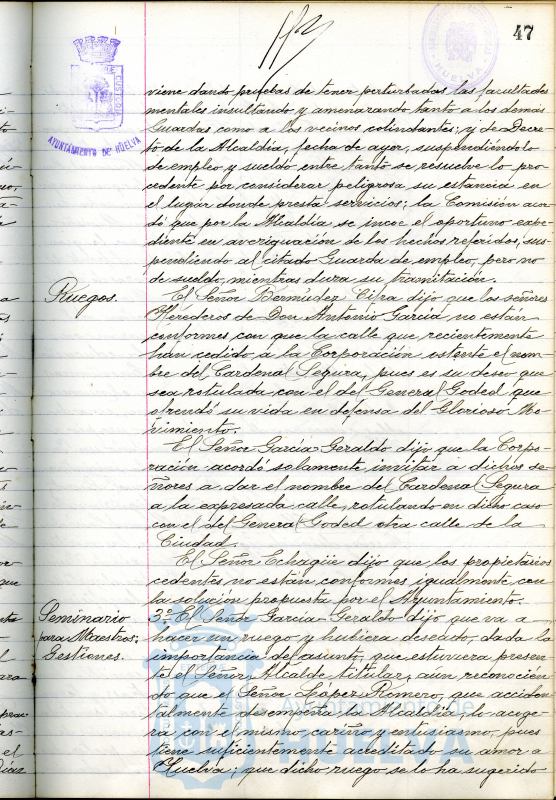 47
AYUNTAMIENTO DE HUELVA
viene dando pruebas de tener perturbadas las facultades
mentales insultando y amenazando tanto a los demás
Guardas como a los vecinos colindantes; y de Decre-
to de la Alcaldía, fecha de ayer, suspendiéndolo
de empleo y sueldo entre tanto se resuelve lo pro-
cedente por considerar peligrosa su estancia en
el lugar donde presta servicios; la Comisión acor-
dó que por la Alcaldía se incoe el oportuno expe-
diente en averiguación de los hechos referidos, sus-
pendiendo al citado Guarda de empleo, pero no
de sueldo, mientras dura su tramitación.
Ruegos.
El Señor Bermudez Cifra dijo que los señores
Herederos de Don Antonio García no están
conformes con que la calle que recientemente
han cedido a la Corporación ostente el nom-
bre del Cardenal Segura, pues es su deseo que
sea rotulada con el del General Goded que
ofrendó su vida en defensa del Glorioso Mo-
vimiento.
El Señor García Geraldo dijo que la Corpo-
ración acordó solamente invitar a dichos se-
ñores a dar el nombre del Cardenal Segura
a la expresada calle, rotulando en dicho caso
con el del General Goded otra calle de la
Ciudad.
El Señor Echagüe dijo que los propietarios
cedentes no están conformes igualmente con
la solución propuesta por el Ayuntamiento.
Seminario
para Maestros;
Gestiones.
3º El Señor García-Geraldo dijo que va a
hacer un ruego y hubiera deseado, dada la
importancia del asunto, que estuviera presen-
te el Señor Alcalde titular, aun reconocien-
do que el Señor López Romero, que acciden-
talmente desempeña la Alcaldía, lo acoge-
rá con el mismo cariño y entusiasmo, pues
tiene suficientemente acreditado su amor a
Huelva; que dicho ruego se lo ha sugerido
Ayuntamiento de
HUELVA